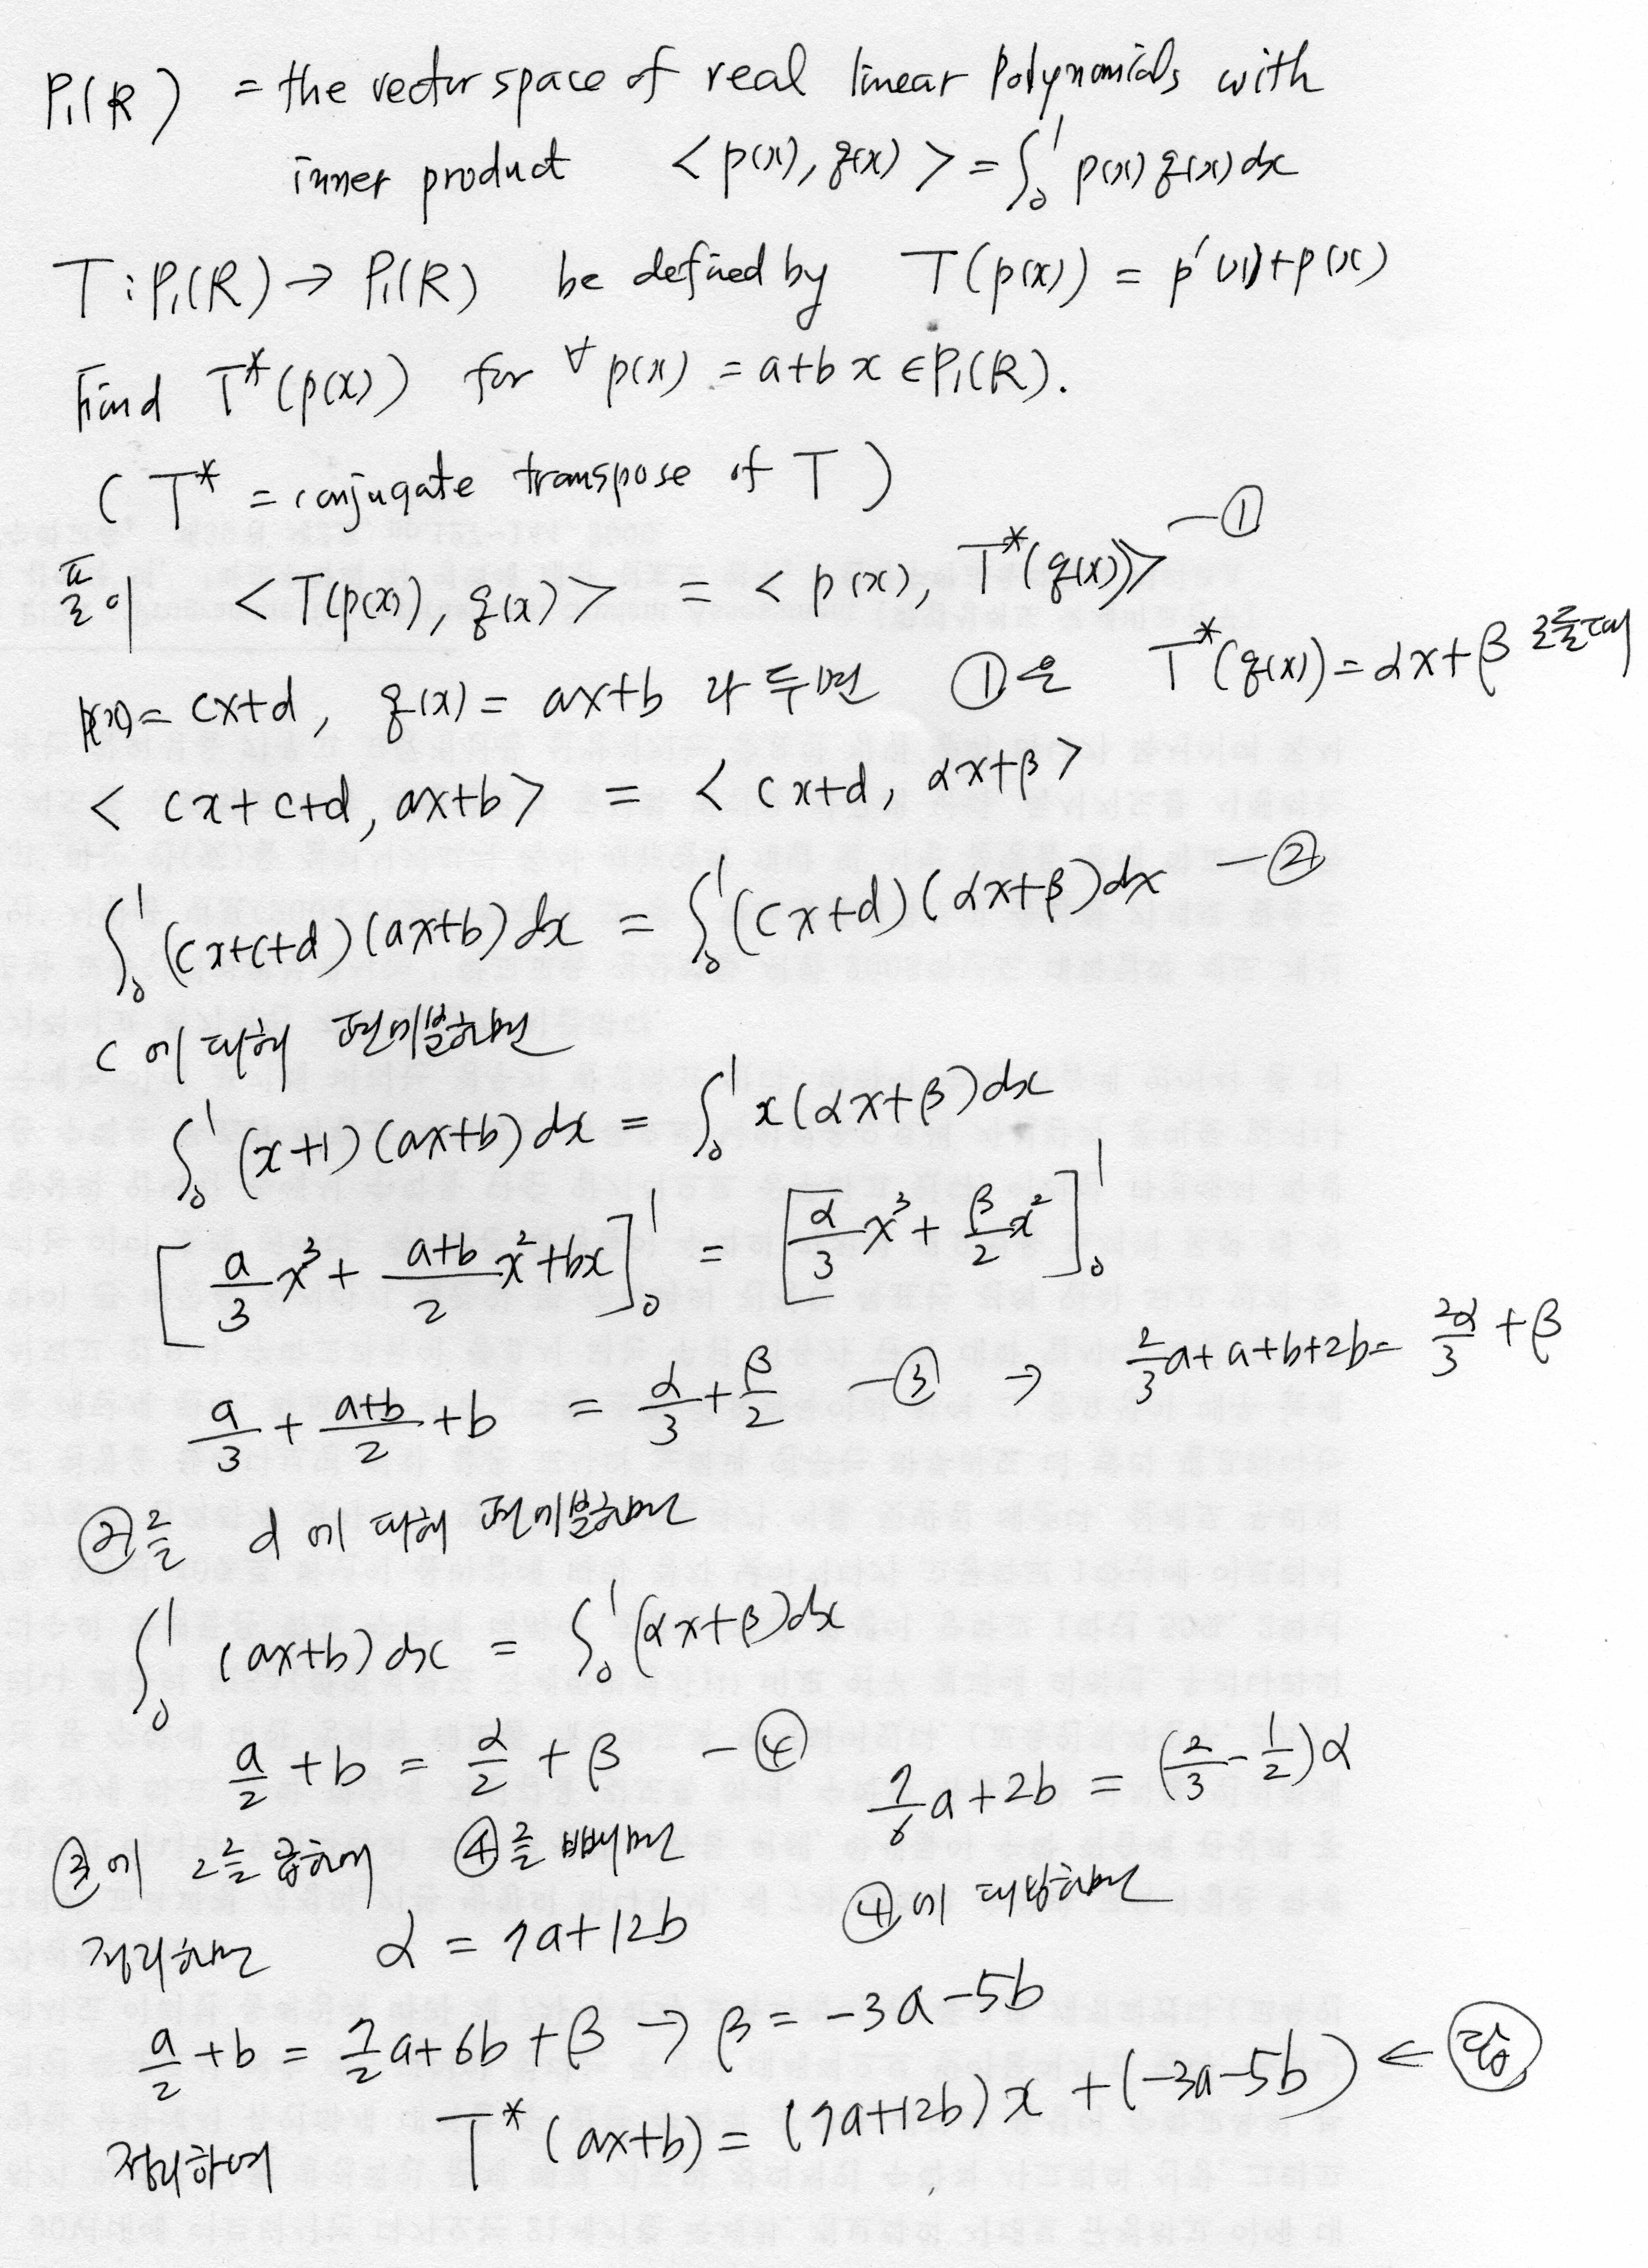 P₁(R) = the vector space of real linear polynomials with
inner product <p(x), q(x)> = ∫₀¹ p(x) q(x) dx
T : P₁(R) → P₁(R) be defined by T(p(x)) = p'(x)+p(x)
Find T*(p(x)) for ∀ p(x) = a+bx ∈ P₁(R).
( T* = conjugate transpose of T )
풀이 <T(p(x)), q(x)> = <p(x), T*(q(x))> —①
p(x) = cx+d, q(x) = ax+b 라 두면 ①은 T*(q(x)) = αx+β 로 둘 때
< cx+c+d, ax+b > = < cx+d, αx+β >
∫₀¹ (cx+c+d)(ax+b) dx = ∫₀¹ (cx+d)(αx+β) dx —②
c에 대해 편미분하면
∫₀¹ (x+1)(ax+b) dx = ∫₀¹ x(αx+β) dx
[ a/3 x³ + (a+b)/2 x² + bx ]₀¹ = [ α/3 x³ + β/2 x² ]₀¹
a/3 + (a+b)/2 + b = α/3 + β/2 —③ → 2/3 a + a+b+2b = 2α/3 + β
②를 d에 대해 편미분하면
∫₀¹ (ax+b) dx = ∫₀¹ (αx+β) dx
a/2 + b = α/2 + β —④
7/6 a + 2b = (2/3 - 1/2)α
③에 2를 곱하여 ④를 빼면
정리하면 α = 7a+12b ④에 대입하면
a/2 + b = 7/2 a + 6b + β → β = -3a-5b
정리하여 T*(ax+b) = (7a+12b)x + (-3a-5b) ← 답